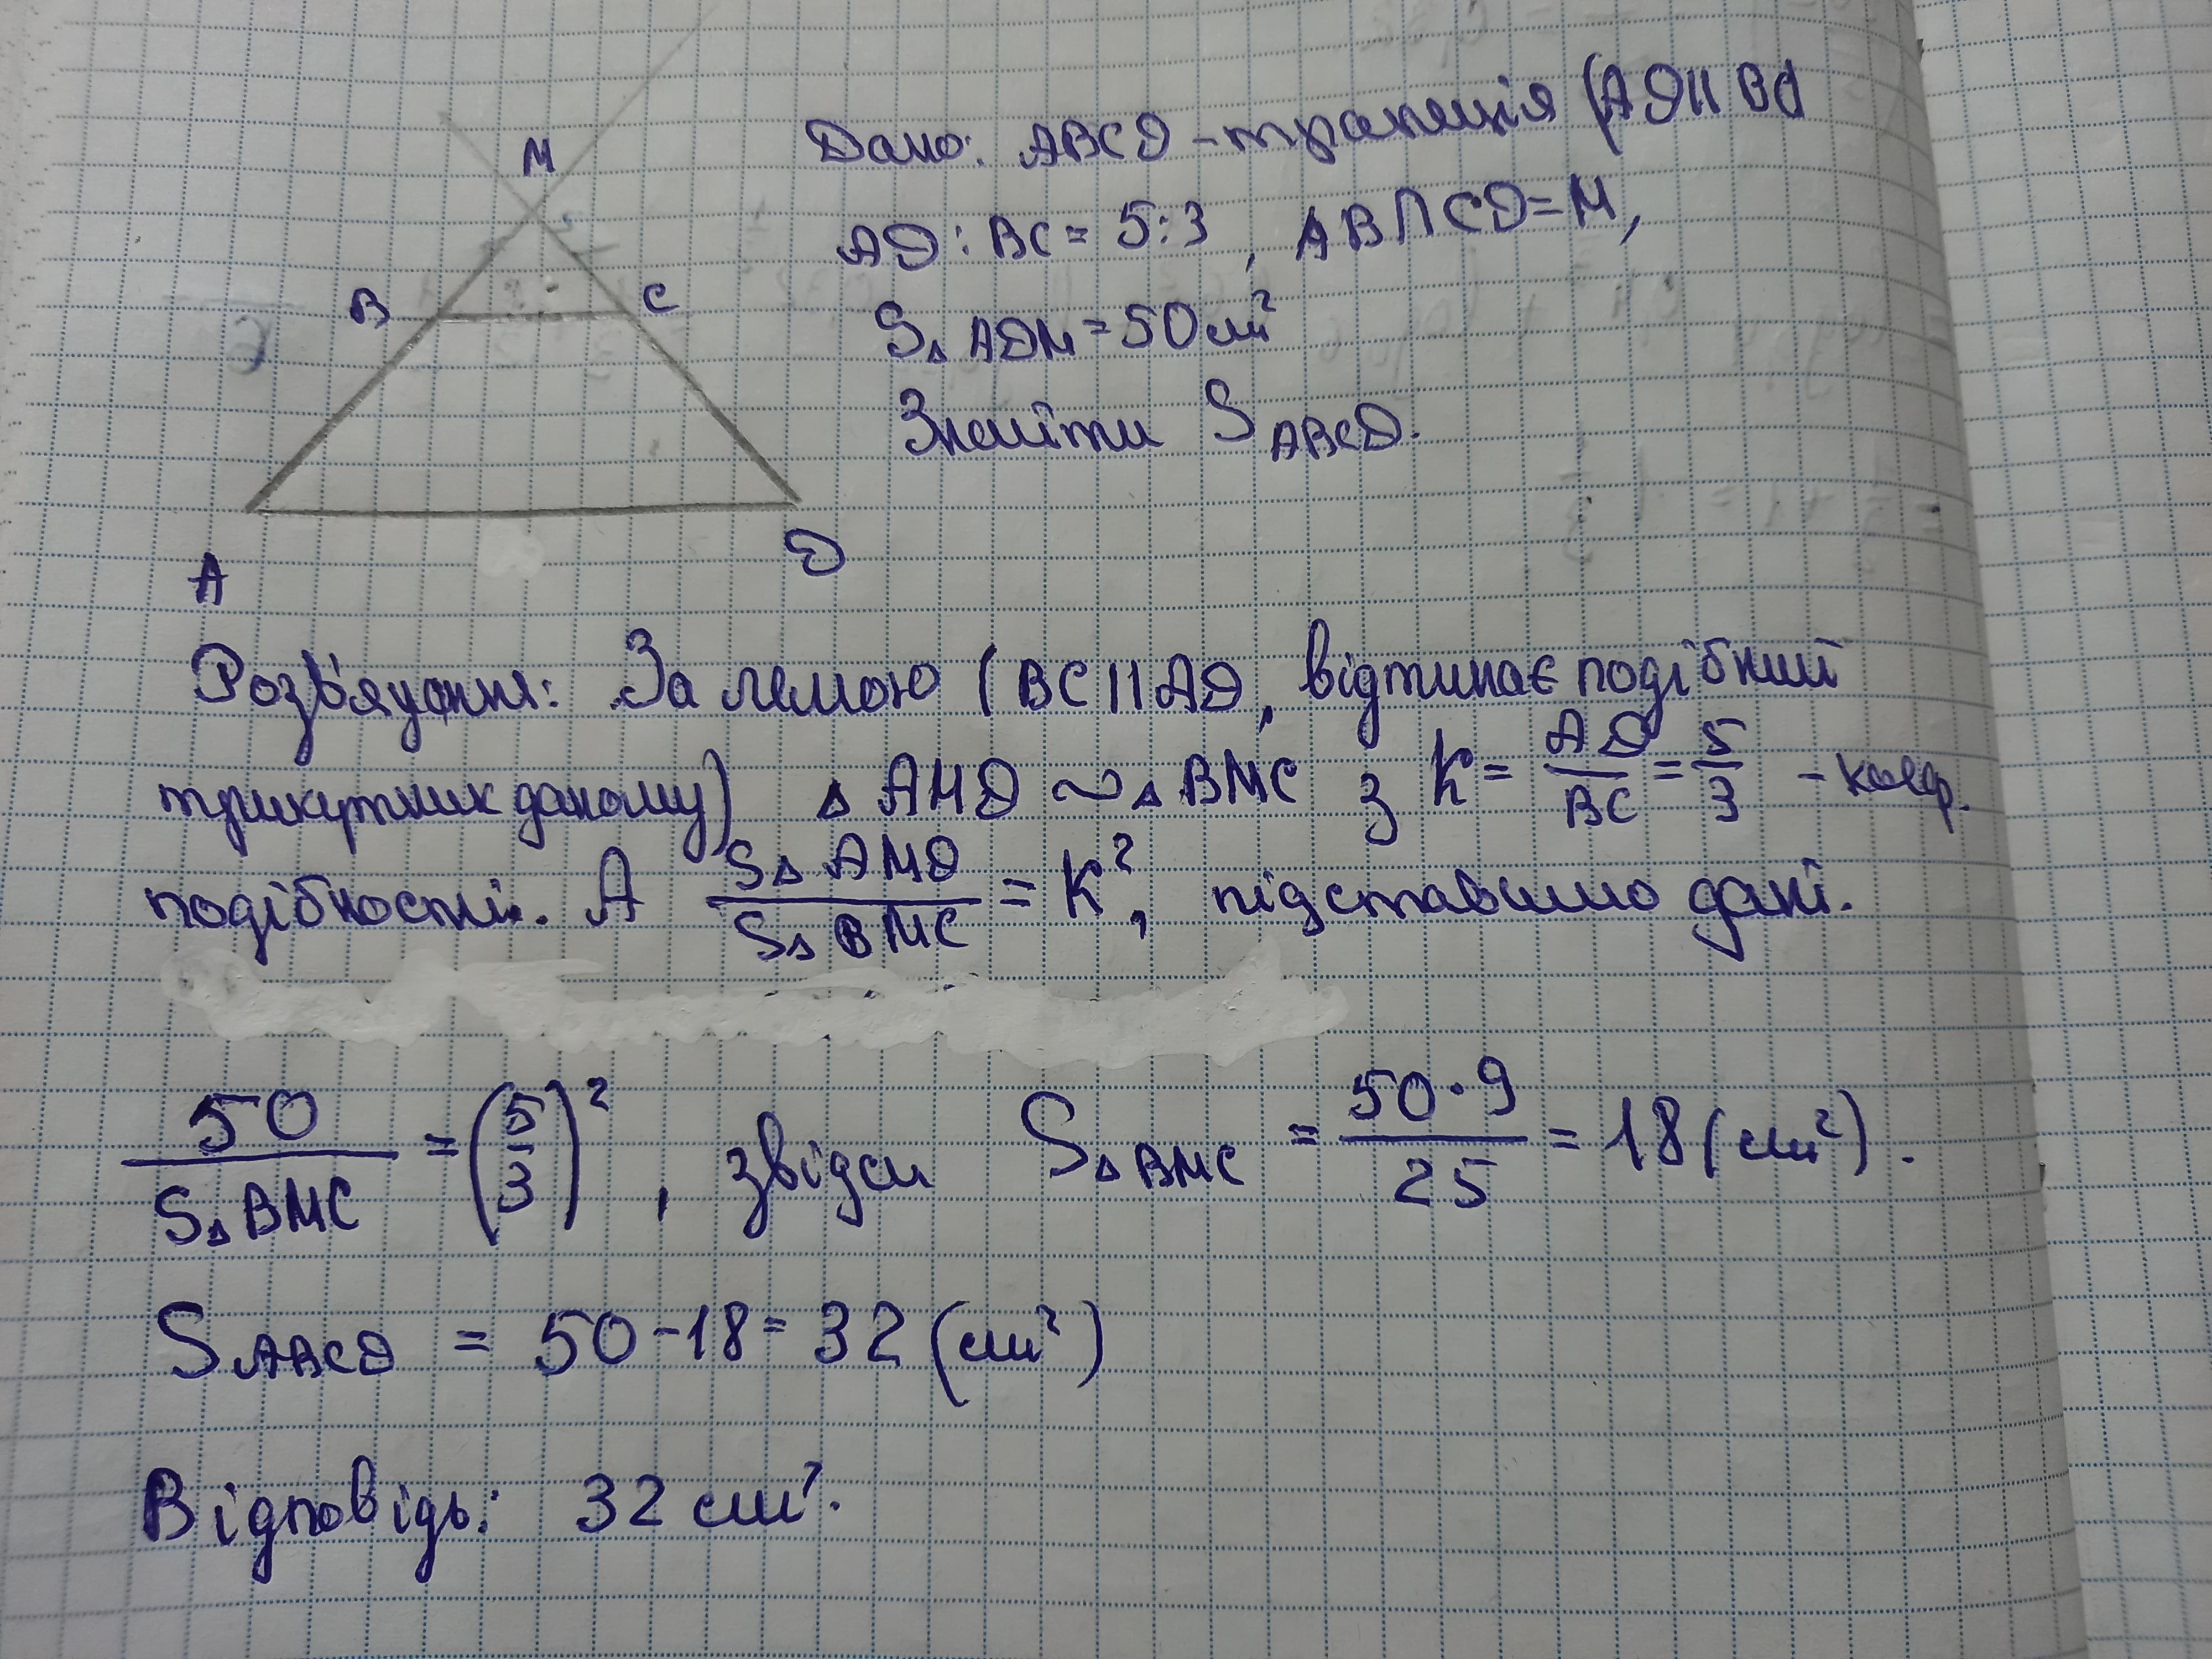 M
B
C
A
D
Дано: ABCD - трапеція (AD || BC)
AD : BC = 5:3, AB ∩ CD = M,
S△ADM = 50 см²
Знайти S ABCD.
Розв'язання: За лемою (BC || AD, відтинає подібний
трикутник даному) △ AMD ~ △ BMC з K = AD/BC = 5/3 - коеф.
подібності. А S△AMD / S△BMC = K², підставимо дані.
50 / S△BMC = (5/3)², звідси S△BMC = 50·9 / 25 = 18 (см²).
S ABCD = 50 - 18 = 32 (см²)
Відповідь: 32 см².